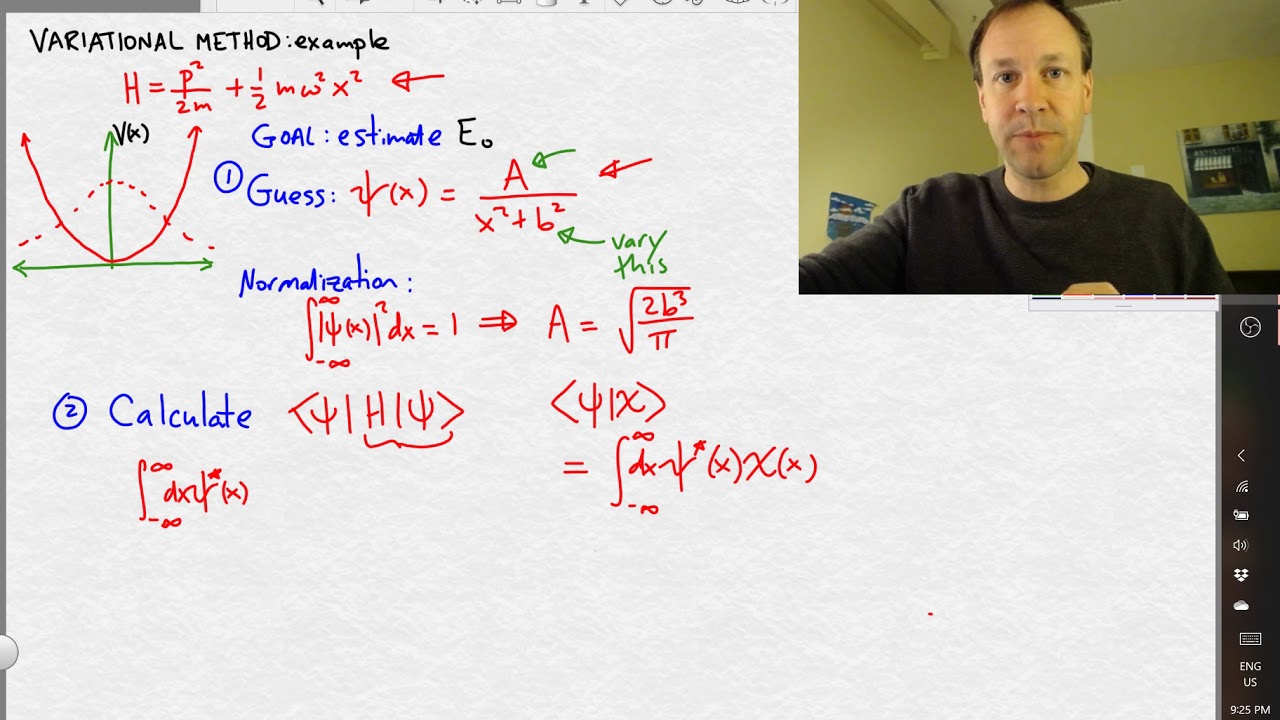 VARIATIONAL METHOD: example
H = p²/2m + ½ mω²x²
V(x)
GOAL: estimate E₀
① Guess: ψ(x) = A/(x² + b²)
vary
this
Normalization:
∫_{-∞}^{∞} |ψ(x)|² dx = 1 ⇒ A = √(2b³/π)
② Calculate ⟨ψ|H|ψ⟩ ⟨ψ|χ⟩
∫_{-∞}^{∞} dx ψ*(x) = ∫_{-∞}^{∞} dx ψ*(x) χ(x)
ENG
US
9:25 PM